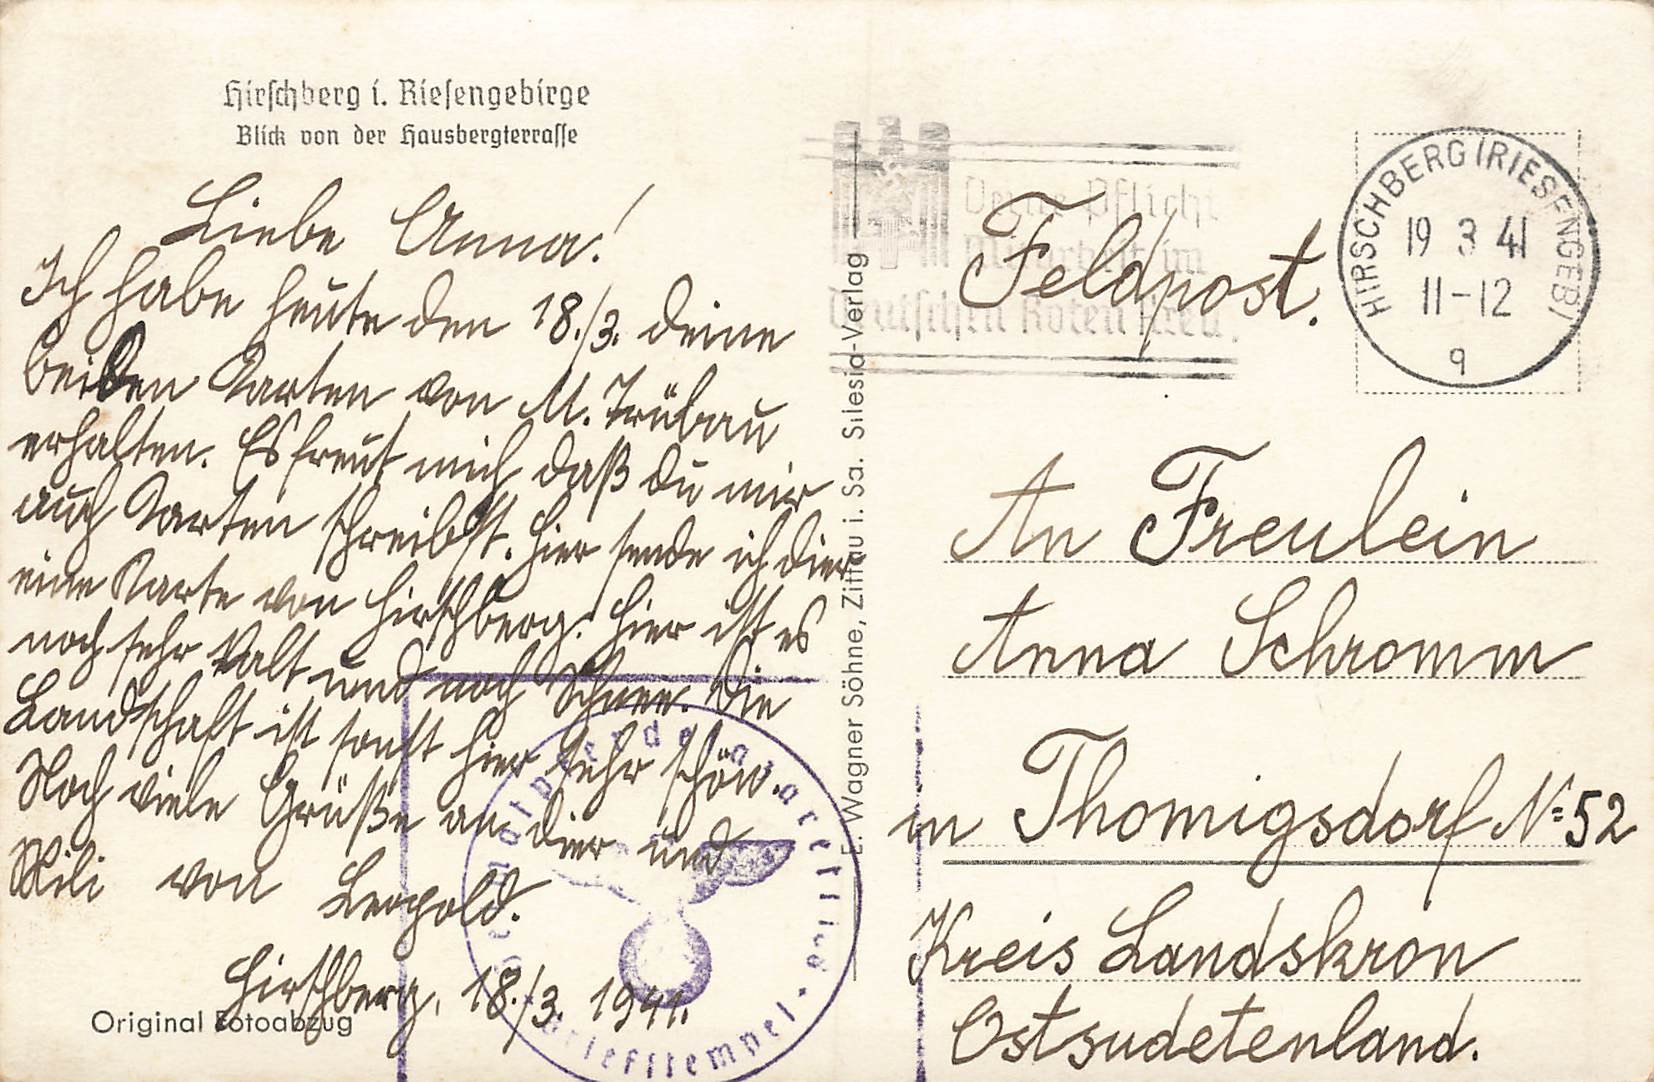 Hirschberg i. Riesengebirge
Blick von der Hausbergterrasse
Liebe Anna!
Ich habe heute den 18./3. deine
beiden Karten von M. Trübau
erhalten. Es freut mich daß du mir
auch Karten schreibst. Hier sende ich dier
eine Karte von Hirschberg. Hier ist es
noch sehr kalt und noch Schnee. Die
Landschaft ist sonst hier sehr schön.
Noch viele Grüße an dier und
Mili von Leopold.
Hirschberg, 18./3. 1941.
Original Fotoabzug
E. Wagner Söhne, Zittau i. Sa. Silesia-Verlag
Deine Pflicht
Mitarbeit im
Deutschen Roten Kreuz
HIRSCHBERG (RIESENGEB)
19 3 41
11-12
q
Feldpost.
An Freulein
Anna Schromm
in Thomigsdorf N= 52
Kreis Landskron
Ostsudetenland.
Briefstempel